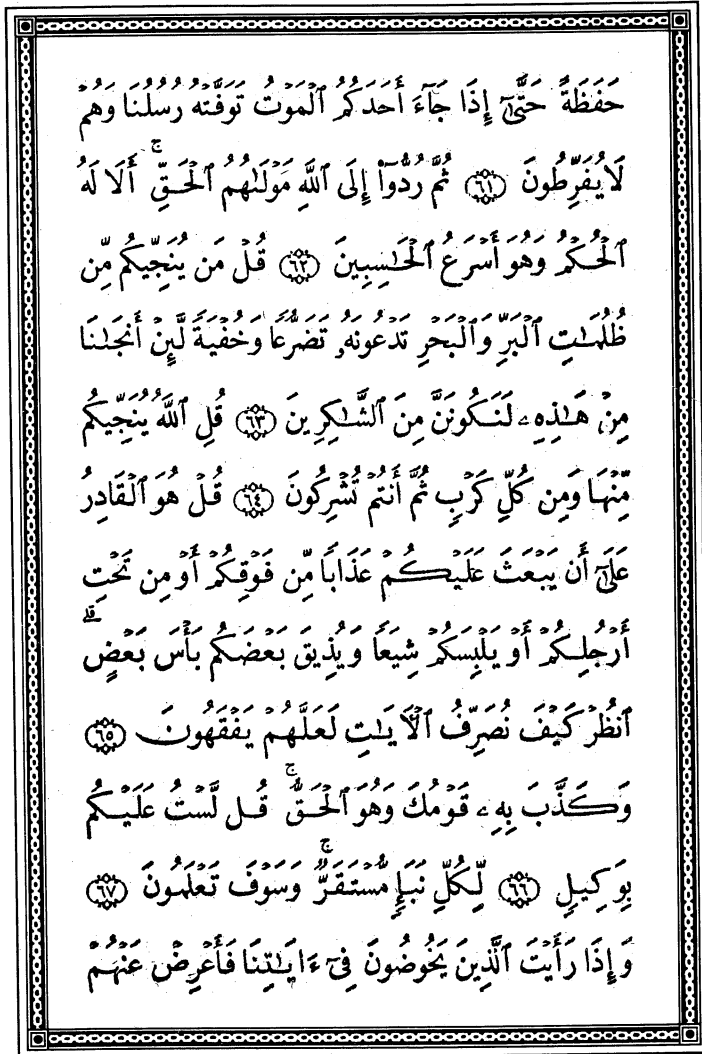 حَفَظَةً حَتَّىٰٓ إِذَا جَآءَ أَحَدَكُمُ ٱلْمَوْتُ تَوَفَّتْهُ رُسُلُنَا وَهُمْ
لَا يُفَرِّطُونَ ﴿٦١﴾ ثُمَّ رُدُّوٓا۟ إِلَى ٱللَّهِ مَوْلَىٰهُمُ ٱلْحَقِّ ۚ أَلَا لَهُ
ٱلْحُكْمُ وَهُوَ أَسْرَعُ ٱلْحَٰسِبِينَ ﴿٦٢﴾ قُلْ مَن يُنَجِّيكُم مِّن
ظُلُمَٰتِ ٱلْبَرِّ وَٱلْبَحْرِ تَدْعُونَهُۥ تَضَرُّعًا وَخُفْيَةً لَّئِنْ أَنجَىٰنَا
مِنْ هَٰذِهِۦ لَنَكُونَنَّ مِنَ ٱلشَّٰكِرِينَ ﴿٦٣﴾ قُلِ ٱللَّهُ يُنَجِّيكُم
مِّنْهَا وَمِن كُلِّ كَرْبٍ ثُمَّ أَنتُمْ تُشْرِكُونَ ﴿٦٤﴾ قُلْ هُوَ ٱلْقَادِرُ
عَلَىٰٓ أَن يَبْعَثَ عَلَيْكُمْ عَذَابًا مِّن فَوْقِكُمْ أَوْ مِن تَحْتِ
أَرْجُلِكُمْ أَوْ يَلْبِسَكُمْ شِيَعًا وَيُذِيقَ بَعْضَكُم بَأْسَ بَعْضٍ ۗ
ٱنظُرْ كَيْفَ نُصَرِّفُ ٱلْءَايَٰتِ لَعَلَّهُمْ يَفْقَهُونَ ﴿٦٥﴾
وَكَذَّبَ بِهِۦ قَوْمُكَ وَهُوَ ٱلْحَقُّ ۚ قُل لَّسْتُ عَلَيْكُم
بِوَكِيلٍ ﴿٦٦﴾ لِّكُلِّ نَبَإٍ مُّسْتَقَرٌّ ۚ وَسَوْفَ تَعْلَمُونَ ﴿٦٧﴾
وَإِذَا رَأَيْتَ ٱلَّذِينَ يَخُوضُونَ فِىٓ ءَايَٰتِنَا فَأَعْرِضْ عَنْهُمْ